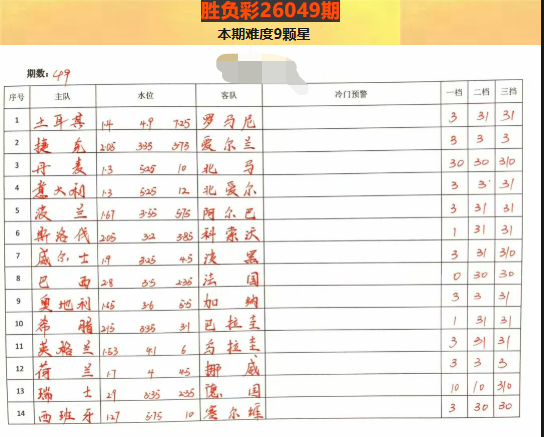 胜负彩26049期
本期难度9颗星
期数：49
序号 主队 水位 客队 冷门预警 一档 二档 三档
1 土耳其 1.4 4.9 7.25 罗马尼 3 31 31
2 捷克 2.05 3.35 3.75 爱尔兰 3 3 3
3 丹麦 1.3 5.25 10 北马 30 30 310
4 意大利 1.3 5.25 12 北爱尔 3 3 31
5 波兰 1.67 3.55 5.75 阿尔巴 3 31 31
6 斯洛伐 2.05 3.2 3.85 科索沃 1 31 31
7 威尔士 1.9 3.25 4.5 波黑 3 31 310
8 巴西 2.8 3.5 2.35 法国 0 30 30
9 奥地利 1.65 3.6 5.5 加纳 3 3 31
10 希腊 2.15 3.35 3.1 巴拉圭 1 31 31
11 英格兰 1.53 4.1 6 乌拉圭 3 31 31
12 荷兰 1.7 4 4.5 挪威 3 3 3
13 瑞士 2.9 3.35 2.35 德国 10 10 310
14 西班牙 1.27 5.75 10 塞尔维 3 30 30